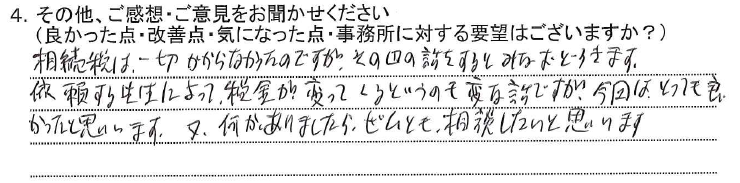 4. その他、ご感想・ご意見をお聞かせください
（良かった点・改善点・気になった点・事務所に対する要望はございますか？）
相続税は、一切かからなかったのですが、その四の話をすると みなおどろきます。
依頼する先生によって、税金が変ってくるというのも変な話ですが、今回は、とっても良
かったと思います。又、何かありましたら、ぜひとも、相談したいと思います